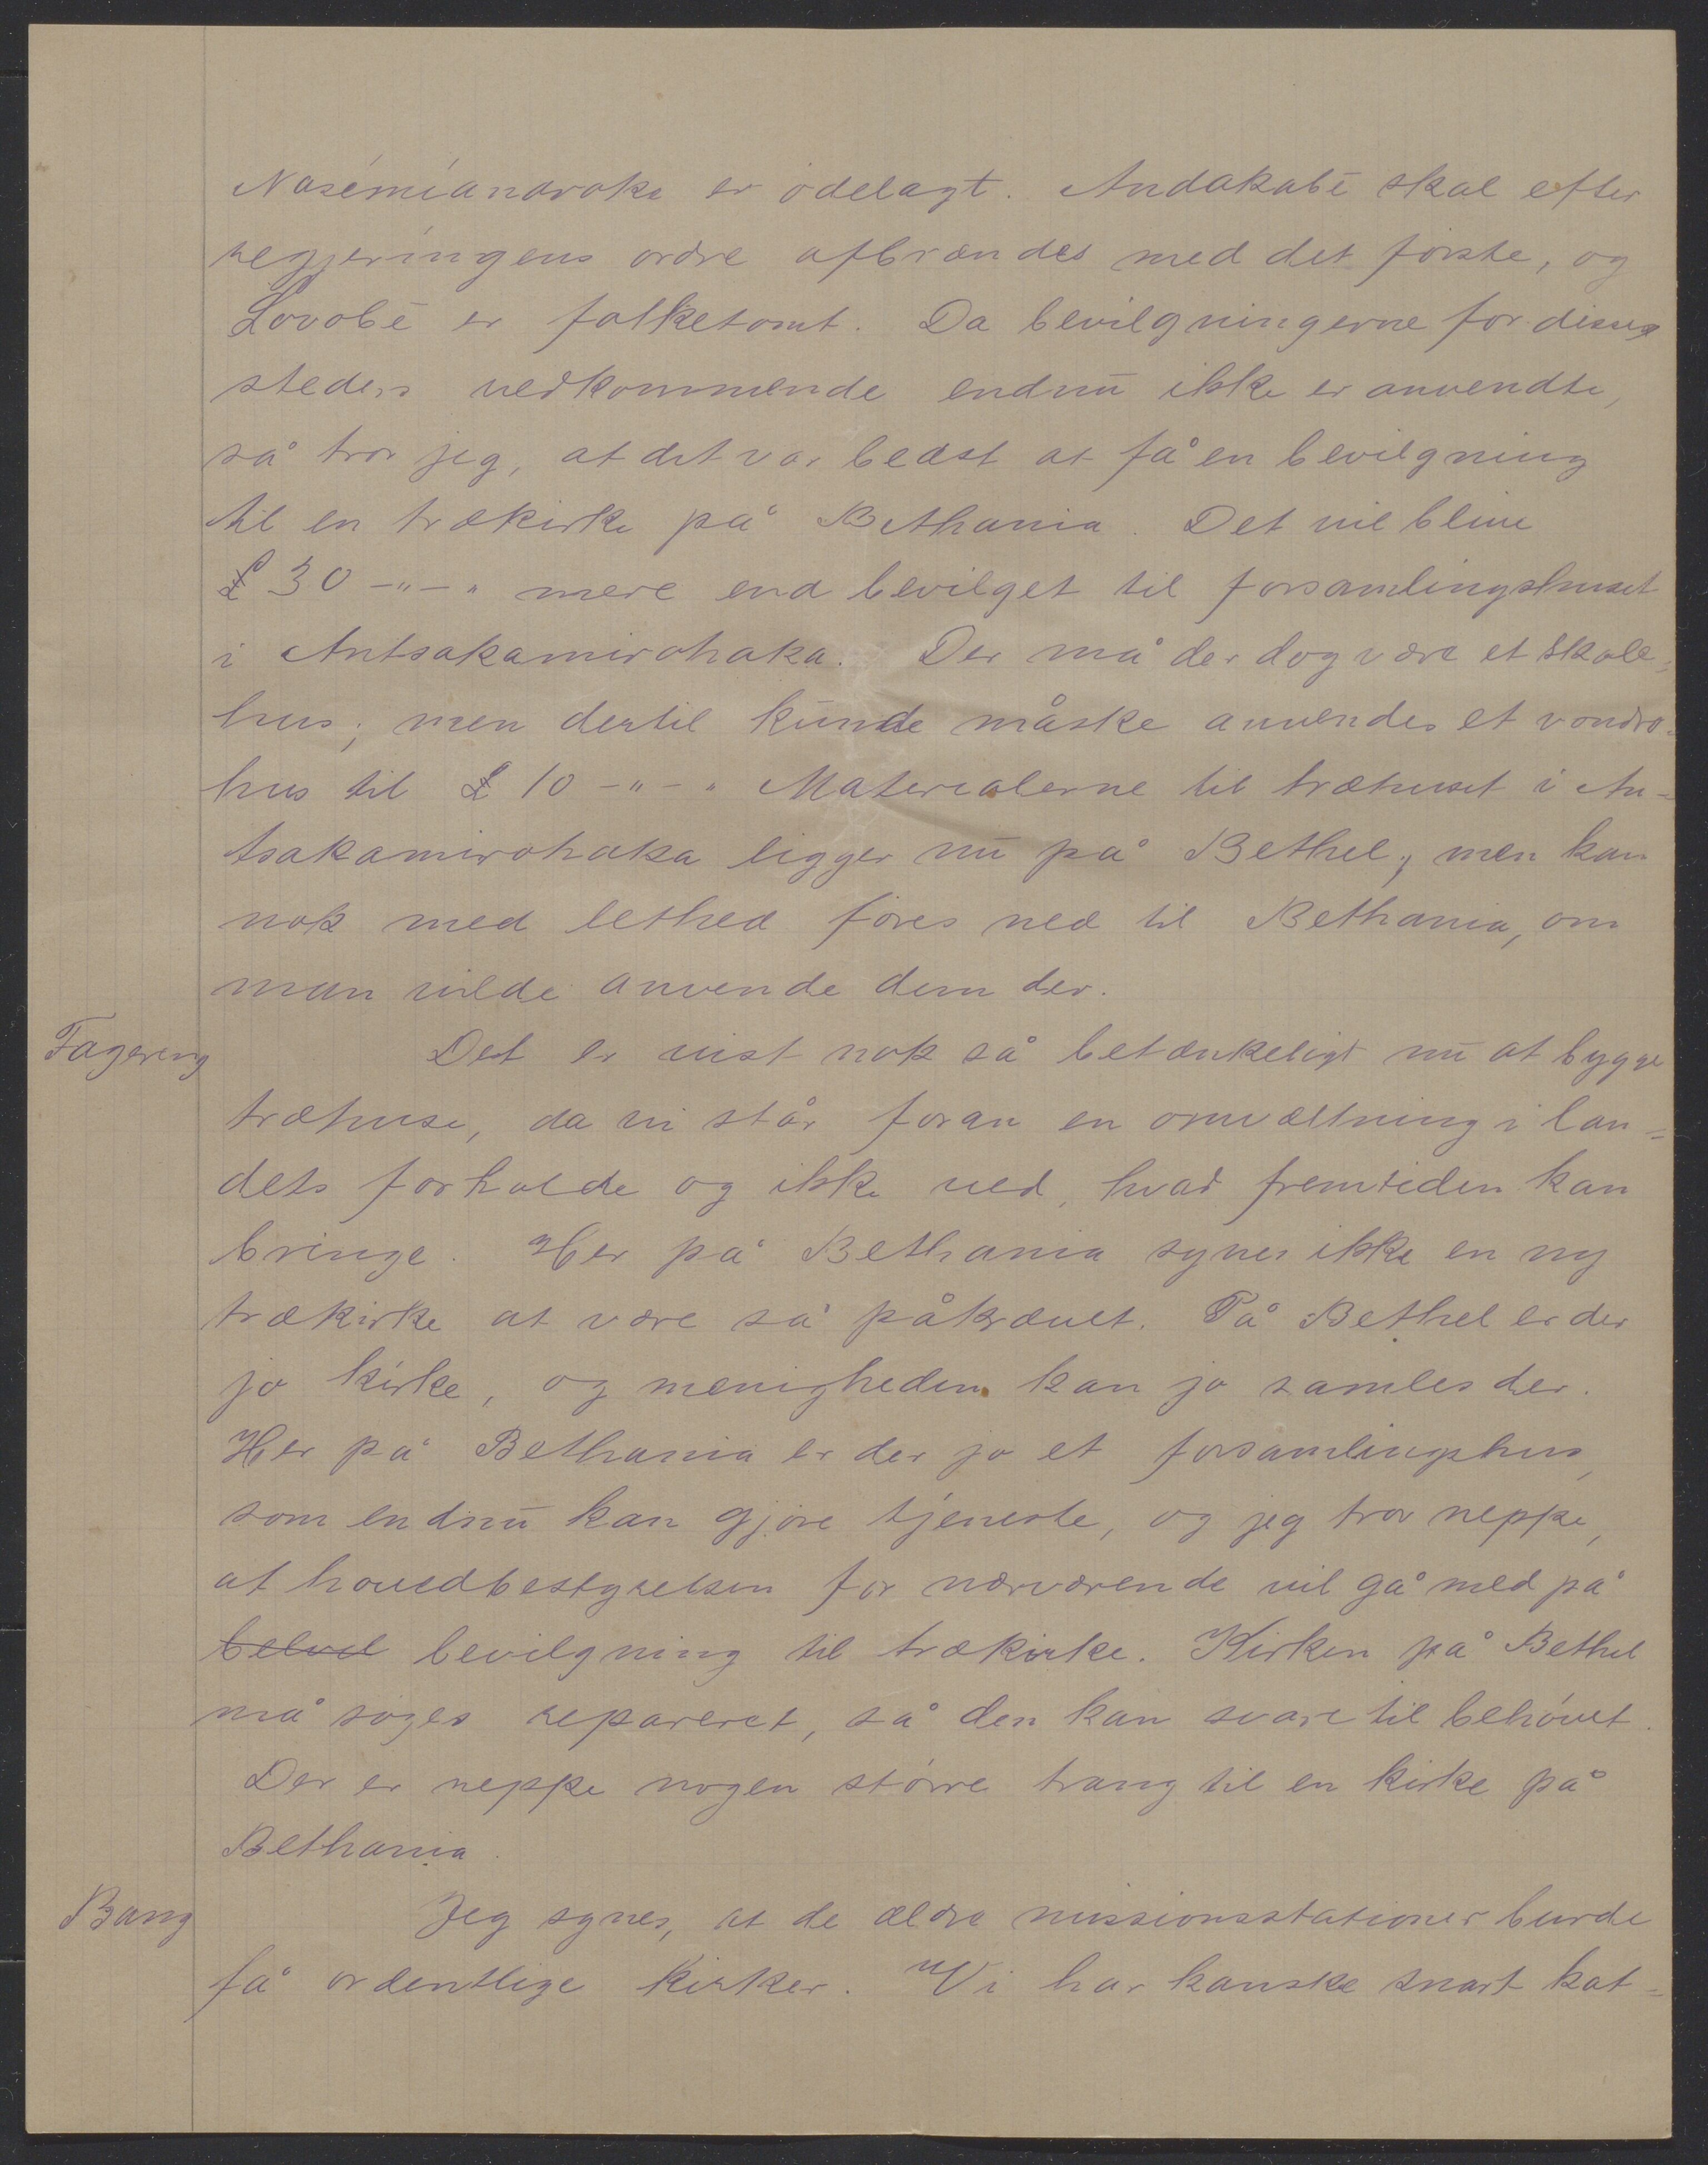 Nosémíandroka er ödelagt. Andakabé skal efter
regjeringens ordre afbrændes med det förste, og
Lovobé er folketomt. Da bevilgningerne for disse
steders vedkommende endnu ikke er anvendte,
så tror jeg, at det var bedst at få en bevilgning
til en trækirke på Bethania. Det vil blive
£ 30 -"-" mere end bevilget til forsamlingshuset
i Antsakamirohaka. Der må der dog være et skole=
hus; men dertil kunde måske anvendes et vondro=
hus til £ 10 -"-" Materialerne til træhuset i An=
tsakamirohaka ligger nu på Bethel, men kan
nok med lethed föres ned til Bethania, om
man vilde anvende dem der.
Fagereng
Det er vist nok så betænkeligt nu at bygge
træhuse, da vi står foran en omvæltning i lan=
dets forholde og ikke ved, hvad fremtiden kan
bringe. Her på Bethania synes ikke en ny
trækirke at være så påkrævet. På Bethel er der
jo kirke, og menigheden kan jo samles der.
Her på Bethania er der jo et forsamlingshus,
som endnu kan gjöre tjeneste, og jeg tror neppe,
at hovedbestyrelsen for nærværende vil gå med på
belvel bevilgning til trækirke. Kirken på Bethel
må söges repareret, så den kan svare til behövet.
Der er neppe nogen större trang til en kirke på
Bethania.
Bang
Jeg synes, at de ældre missionsstationer burde
få ordentlige kirker. Vi har kanske snart kat=